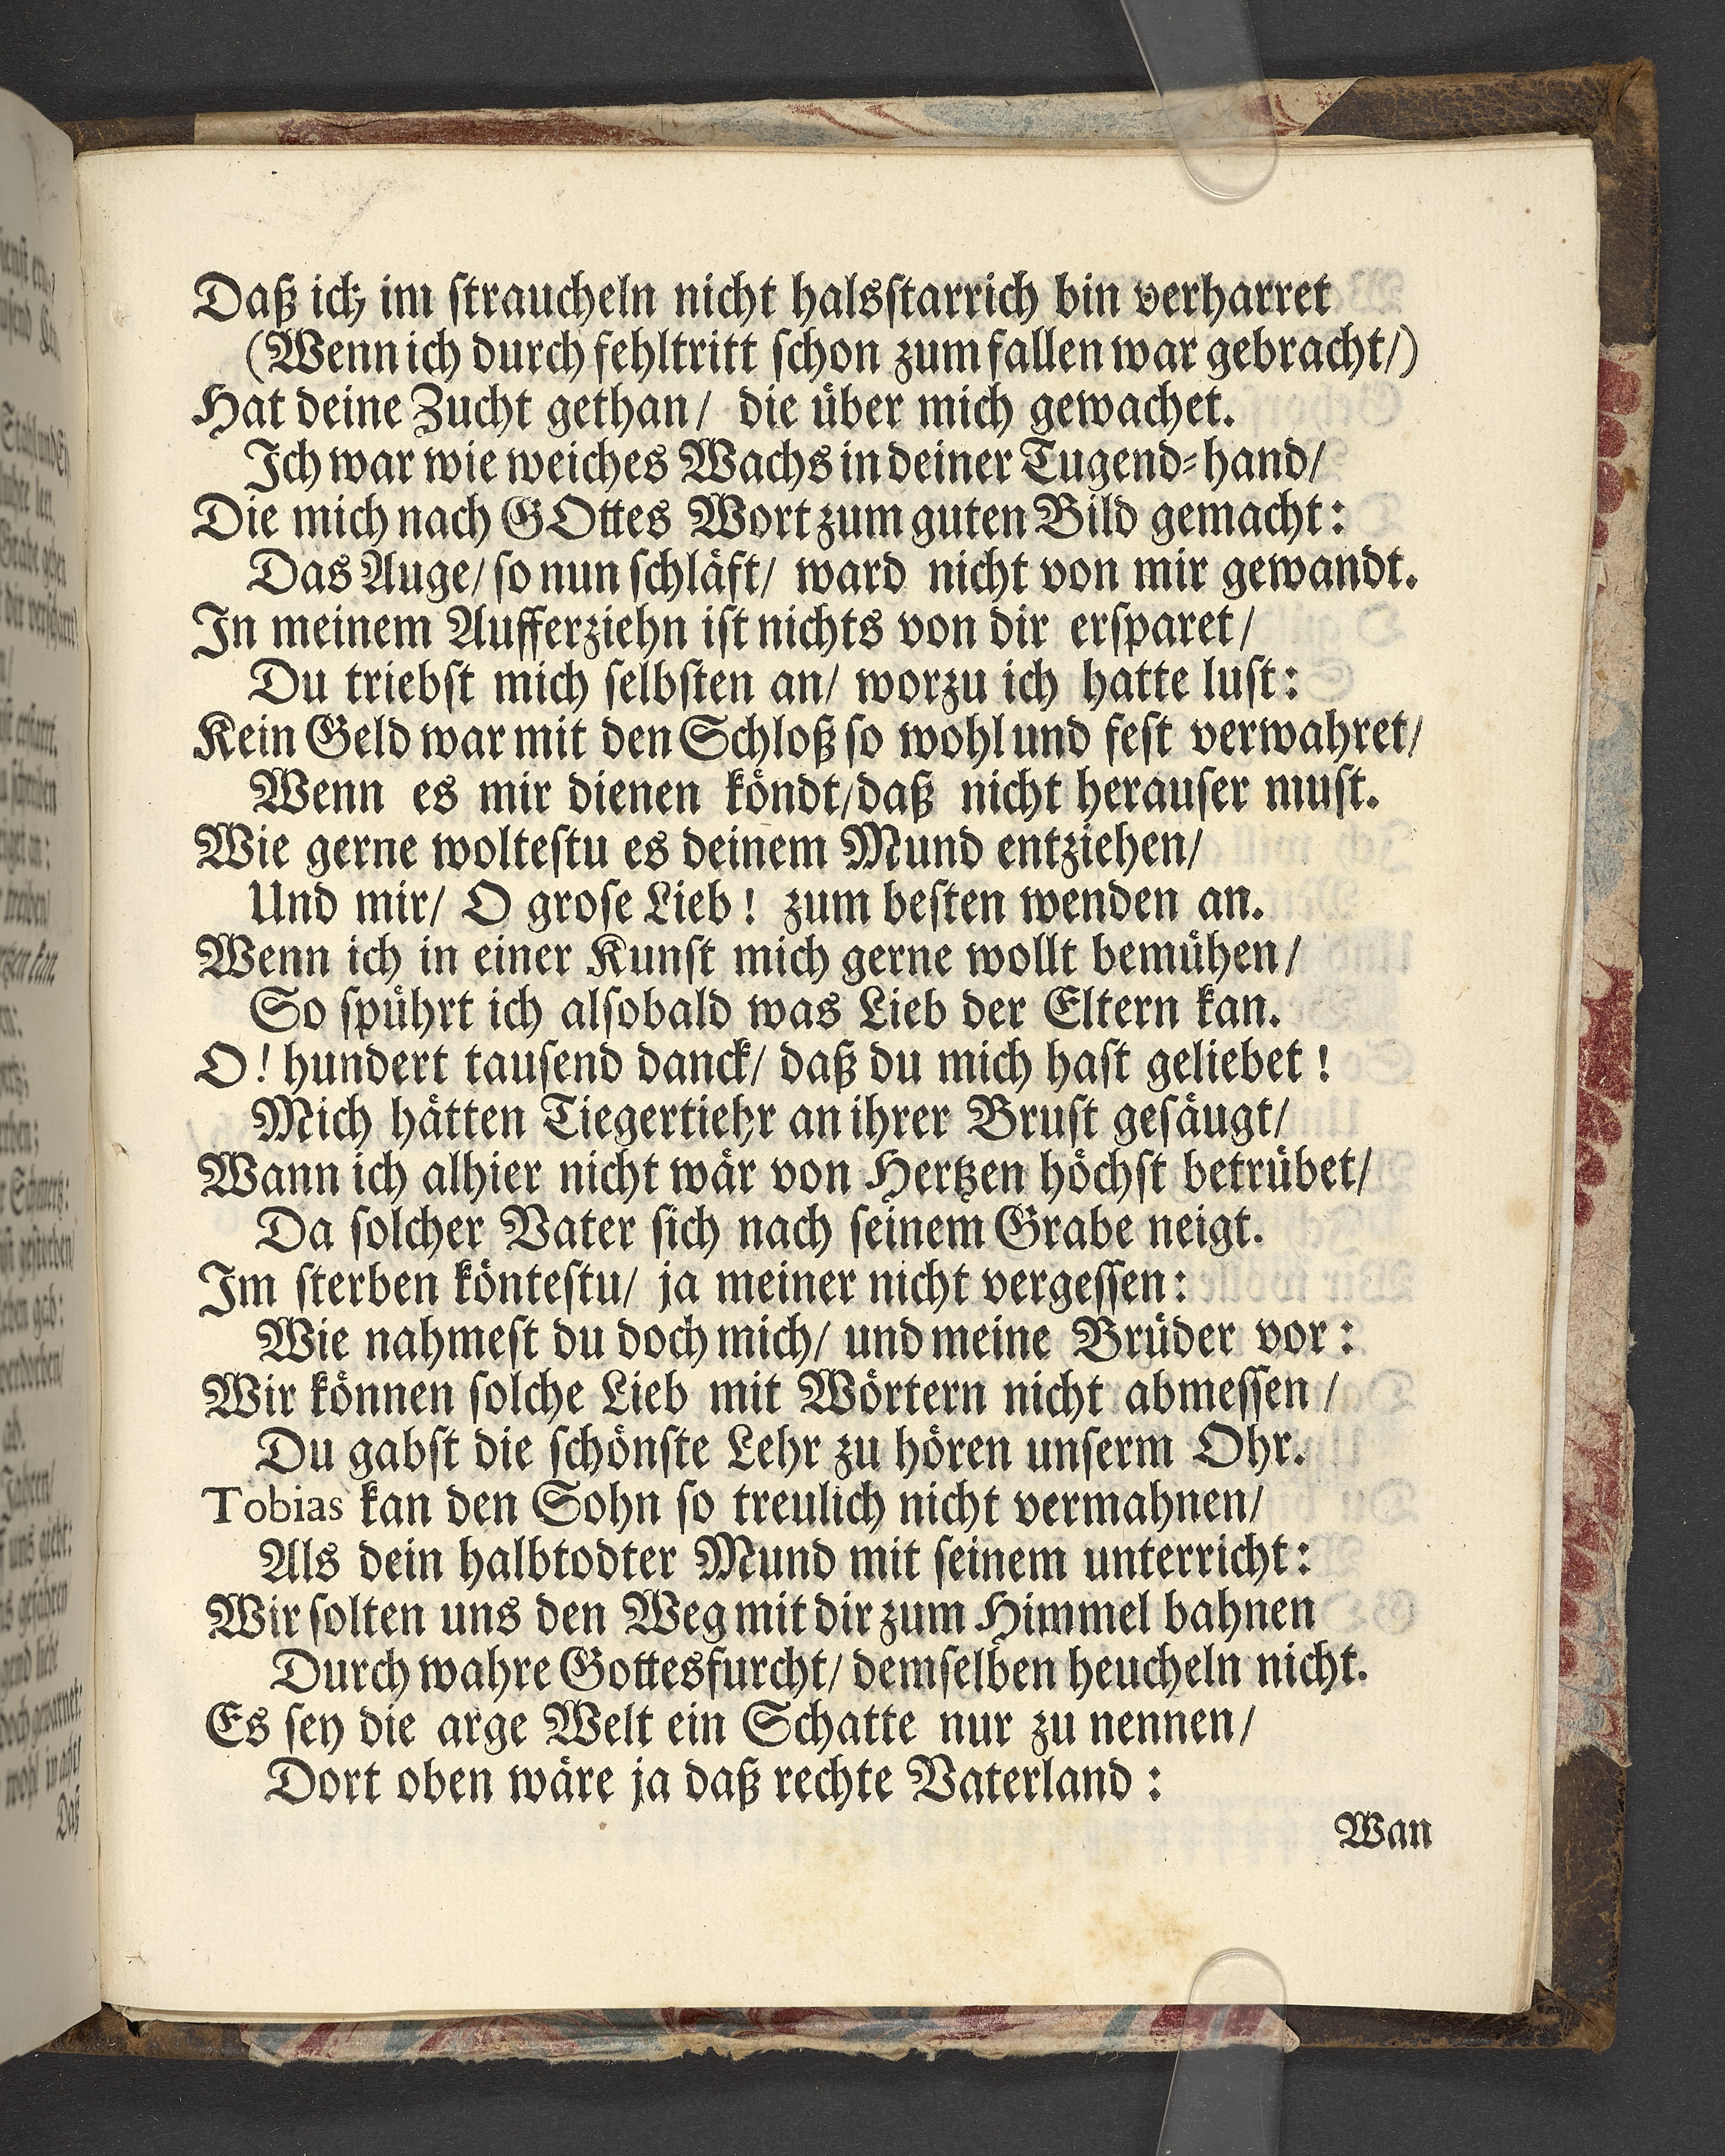 Daß ich im straucheln nicht halsstarrich bin verharret
(Wenn ich durch fehltritt schon zum fallen war gebracht/)
Hat deine Zucht gethan/ die über mich gewachet.
Ich war wie weiches Wachs in deiner Tugend-hand/
Die mich nach GOttes Wort zum guten Bild gemacht:
Das Auge/ so nun schläft/ ward nicht von mir gewandt.
In meinem Aufferziehn ist nichts von dir ersparet/
Du triebst mich selbsten an/ worzu ich hatte lust:
Kein Geld war mit den Schloß so wohl und fest verwahret/
Wenn es mir dienen köndt/daß nicht herauser must.
Wie gerne woltestu es deinem Mund entziehen/
Und mir/ O grose Lieb! zum besten wenden an.
Wenn ich in einer Kunst mich gerne wollt bemühen/
So spührt ich alsobald was Lieb der Eltern kan.
O! hundert tausend danck/ daß du mich hast geliebet!
Mich hätten Tiegertiehr an ihrer Brust gesäugt/
Wann ich alhier nicht wär von Hertzen höchst betrübet/
Da solcher Vater sich nach seinem Grabe neigt.
Im sterben köntestu/ ja meiner nicht vergessen:
Wie nahmest du doch mich/ und meine Brüder vor:
Wir können solche Lieb mit Wörtern nicht abmessen/
Du gabst die schönste Lehr zu hören unserm Ohr.
Tobias kan den Sohn so treulich nicht vermahnen/
Als dein halbtodter Mund mit seinem unterricht:
Wir solten uns den Weg mit dir zum Himmel bahnen
Durch wahre Gottesfurcht/ demselben heucheln nicht.
Es sey die arge Welt ein Schatte nur zu nennen/
Dort oben wäre ja daß rechte Vaterland:
Wan